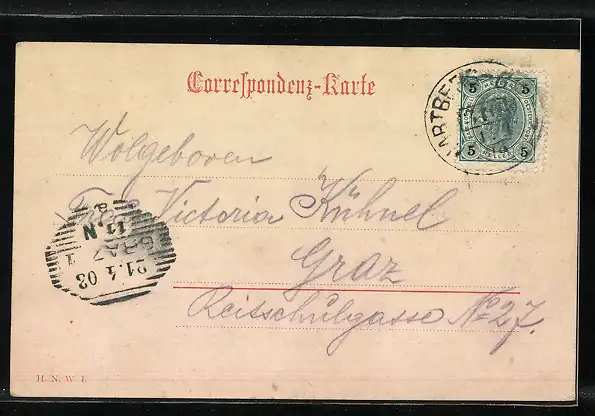 Correspondenz-Karte
5 5
HARTBERG
5 5
HELLER
Wolgeboren
Frau Victoria Kühnel
Graz
Reitschulgasse No 27.
GRAZ 1
21.4.03
11.N
H. N. W. I.